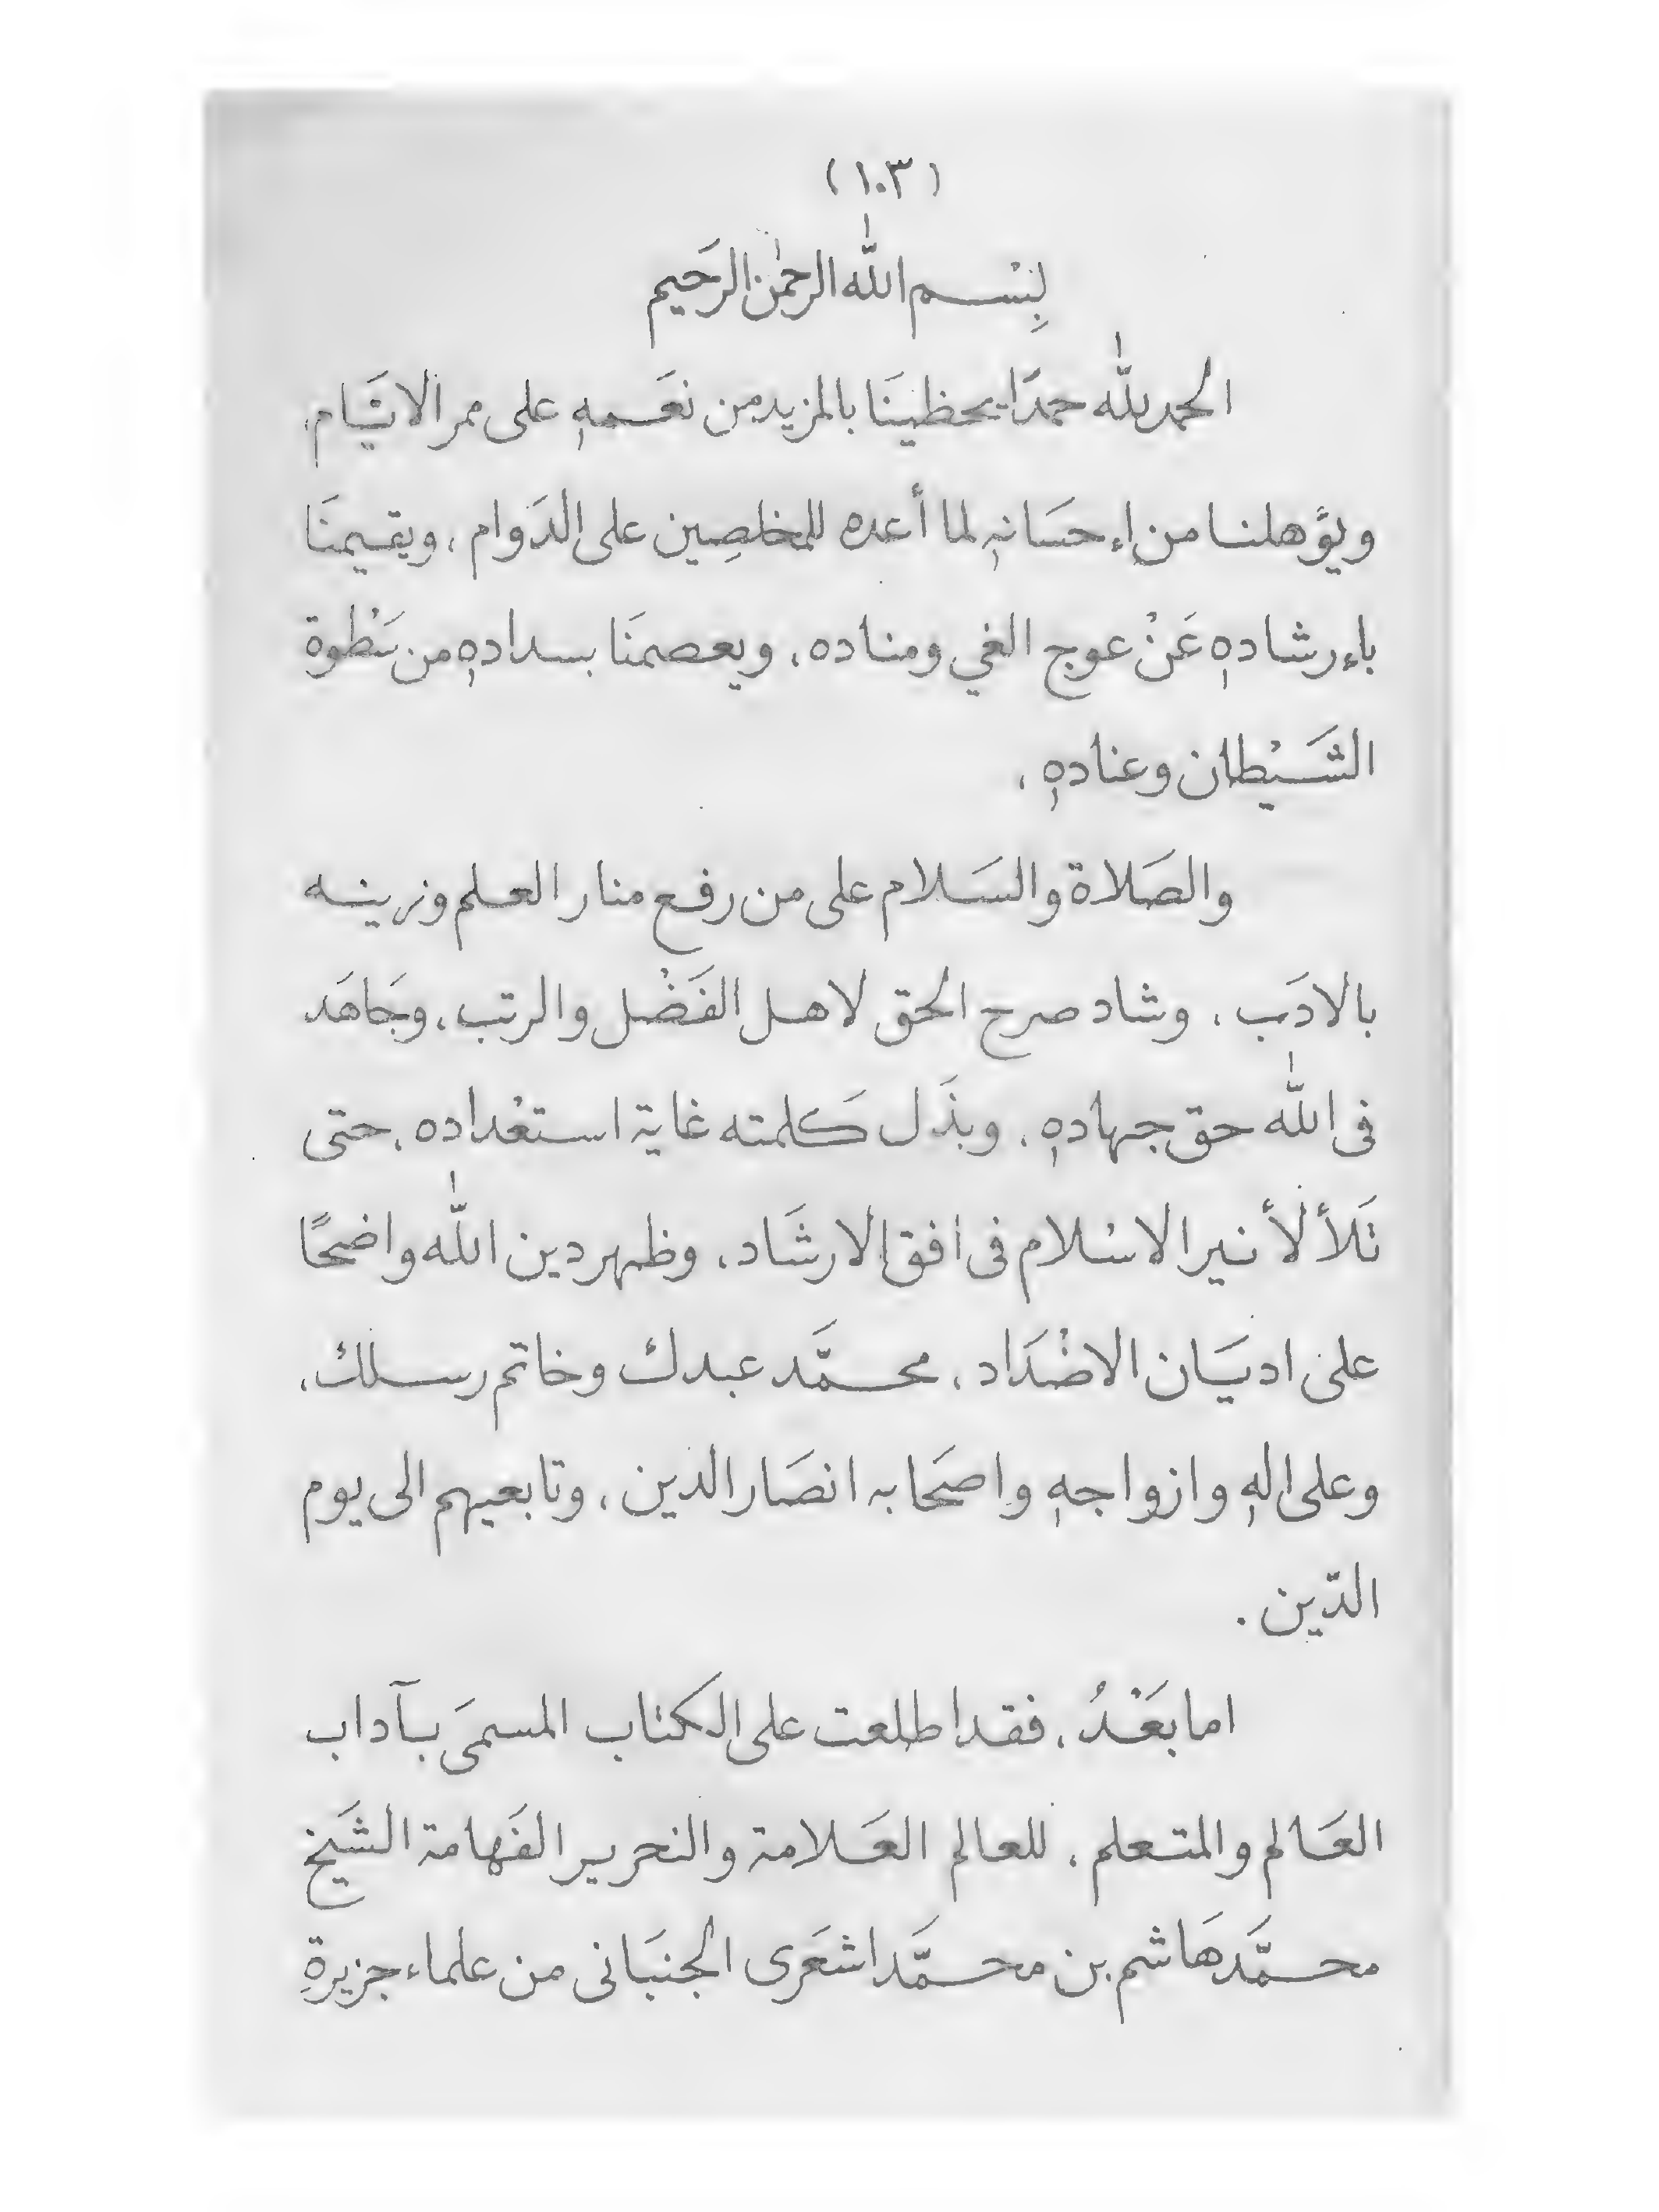 (١٠٣)
بِسْم الله الرحمٰن الرحَيم
الحمد لله حمدًا يحظينَا بالمزيد من نعَمهِ على ممر الايَّام،
ويؤهلنا من إحسَانهِ لما أعده للمخلصِين على الدَوام، ويقيمنَا
بإرشادهِ عَنْ عوج الغي ومناده، ويعصمنَا بسدادهِ من سَطْوة
الشَيْطان وعنادهِ،
والصَلاة والسَلام على من رفع منار العلم وزينه
بالادَب، وشاد صرح الحق لاهل الفَضْل والرتب، وجَاهَد
فى الله حق جهادهِ، وبذَل كَلمته غاية استعْداده، حتى
تَلألأ نير الاسْلام فى افق الارشَاد، وظهر دين الله واضحًا
على اديَان الاضْدَاد، محمَّد عبدك وخاتم رسلك،
وعلى الهِ وازواجهِ واصحَابه انصَار الدين، وتابعيهم الى يوم
الدّين.
اما بَعْدُ، فقد اطلعت على الكتاب المسمىَ بآداب
العَالم والمتعلم، للعالم العَلامة والنحرير الفَهامة الشَيخ
محمَّد هَاشم بن محمَّد اشعَرى الجنبَانى من علماء جزيرةِ